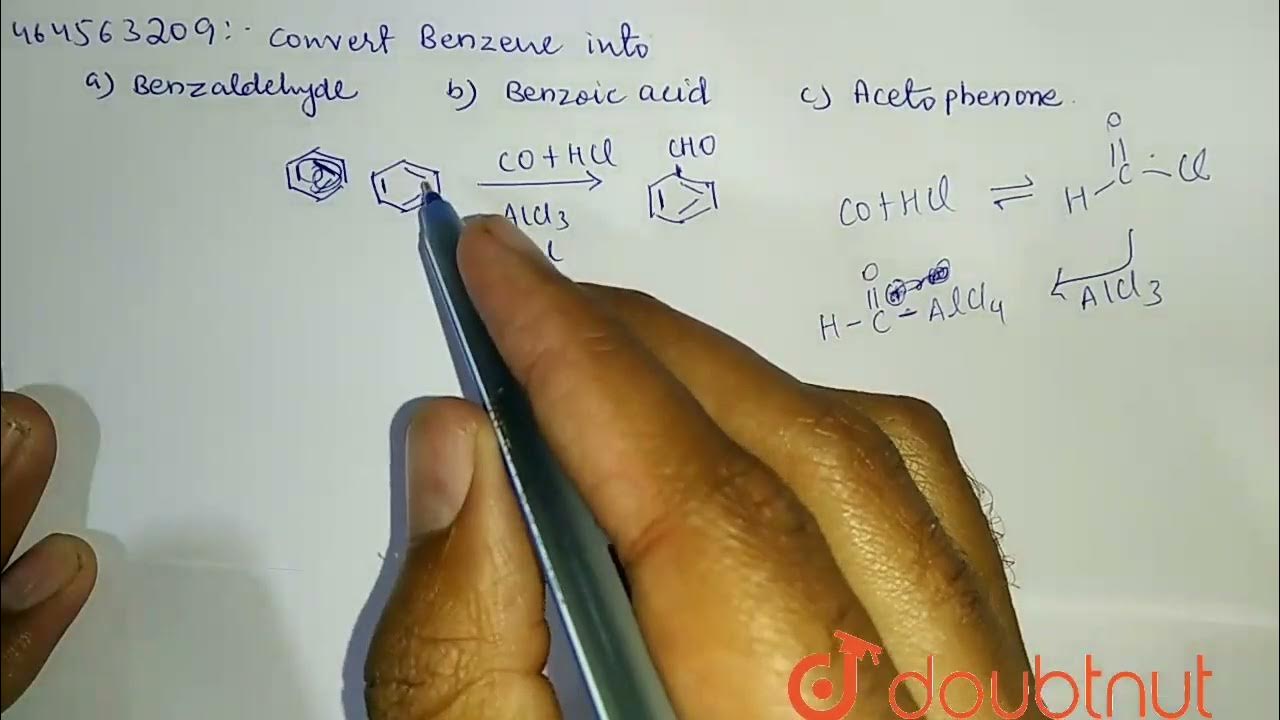 464563209:- Convert Benzene into
a) Benzaldehyde b) Benzoic acid c) Acetophenone.
CO+HCl
AlCl3
CHO
CO+HCl ⇌ H C O Cl
AlCl3
O
H-C-AlCl4
doubtnut